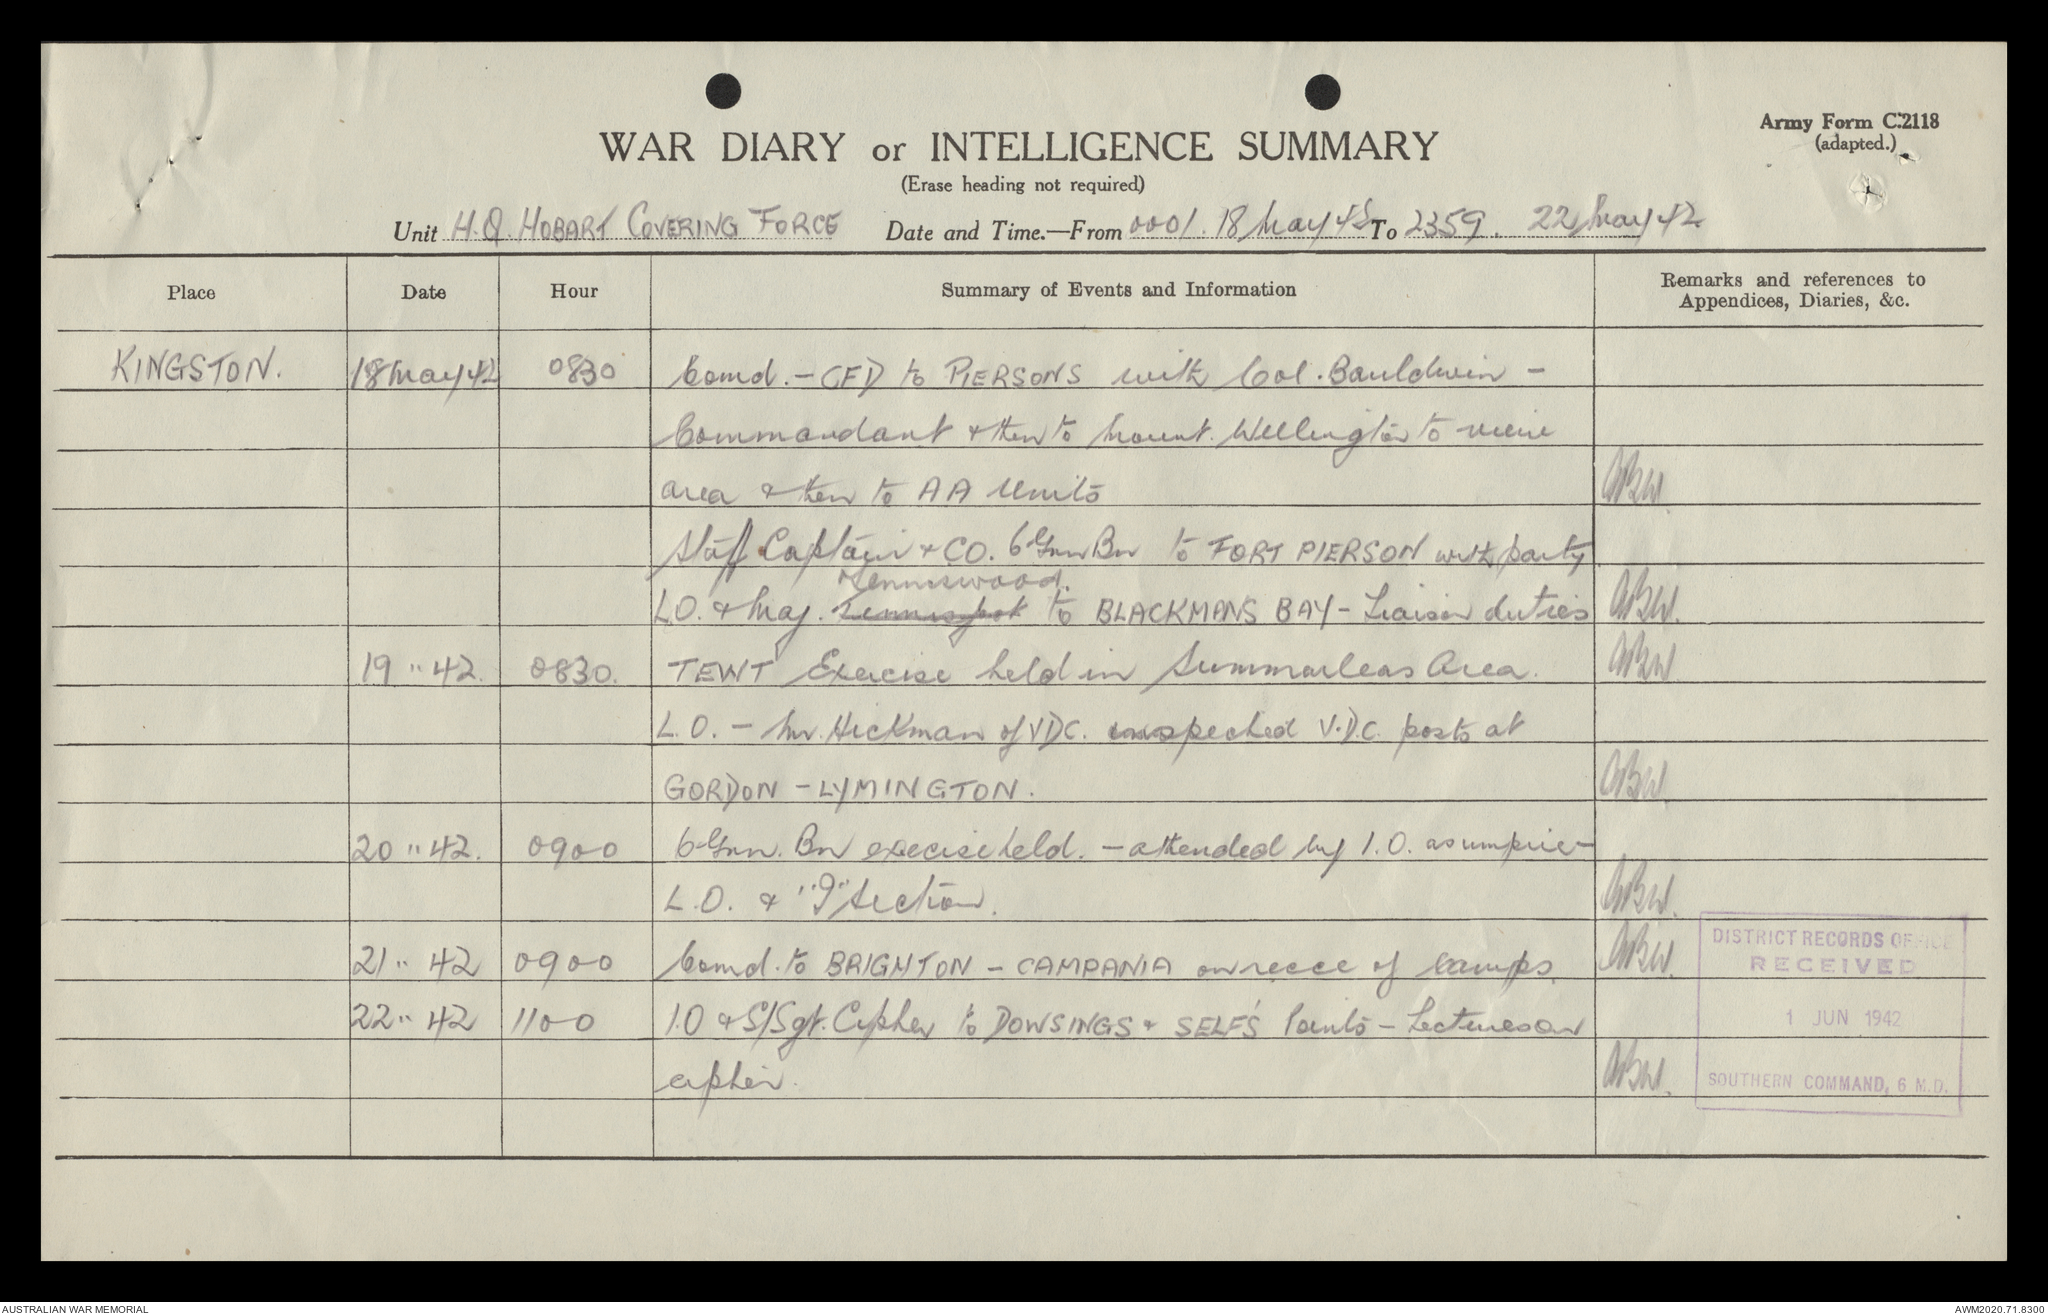 Army Form C.2118
(adapted.)
WAR DIARY or INTELLIGENCE SUMMARY
(Erase heading not required)
Unit H.Q. HOBART COVERING FORCE Date and Time.—From 0001. 18 May 42 To 2359. 22 May 42
Place Date Hour Summary of Events and Information Remarks and references to
Appendices, Diaries, &c.
KINGSTON. 18 May 42 0830 Comd. - CFD to PIERSONS with Col. Bauldwin -
Commandant & then to Mount. Wellington to view
area & then to AA Units ABW.
Staff Captain & CO. 6 Grn Bn to FORT PIERSON with party
Tenniswood.
L.O. & Maj. to BLACKMANS BAY - Liaison duties ABW.
19 " 42. 0830. TEWT Exercise held in Summerleas Area. ABW
L.O. - Mr. Hickman of VDC. inspected V.D.C. posts at
GORDON - LYMINGTON. ABW.
20 " 42. 0900 6 Grn. Bn exercise held. - attended by I.O. as umpire -
L.O. & "I" Section. ABW.
21 " 42 0900 Comd. to BRIGHTON - CAMPANIA on recce of camps. ABW.
22 " 42 1100 I.O & S/Sgt. Cipher to DOWSINGS & SELF'S Points - Lectures on
cipher. ABW.
DISTRICT RECORDS OFFICE
RECEIVED
1 JUN 1942
SOUTHERN COMMAND, 6 M.D.
AUSTRALIAN WAR MEMORIAL AWM2020.71.8300